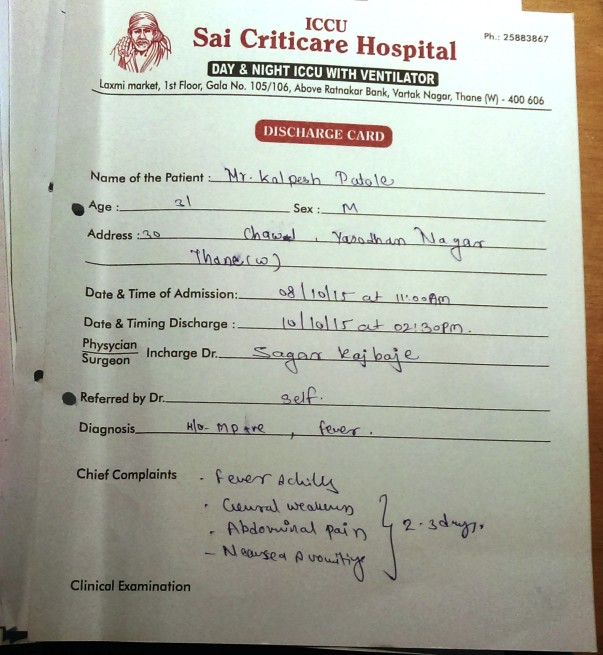 ICCU
Sai Criticare Hospital
Ph.: 25883867
DAY & NIGHT ICCU WITH VENTILATOR
Laxmi market, 1st Floor, Gala No. 105/106, Above Ratnakar Bank, Vartak Nagar, Thane (W) - 400 606
DISCHARGE CARD
Name of the Patient : Mr. Kalpesh Patole
Age : 31 Sex : M
Address : 30 Chawl, Yasodhan Nagar
Thane (w)
Date & Time of Admission: 08/10/15 at 11:00AM
Date & Timing Discharge : 10/10/15 at 02:30PM.
Physycian
Surgeon Incharge Dr. Sagar Kajbaje
Referred by Dr. self.
Diagnosis H/o- MP +ve, fever.
Chief Complaints · fever chills
· General weakness
· Abdominal pain } 2-3 days.
- Neausea & vomiting
Clinical Examination